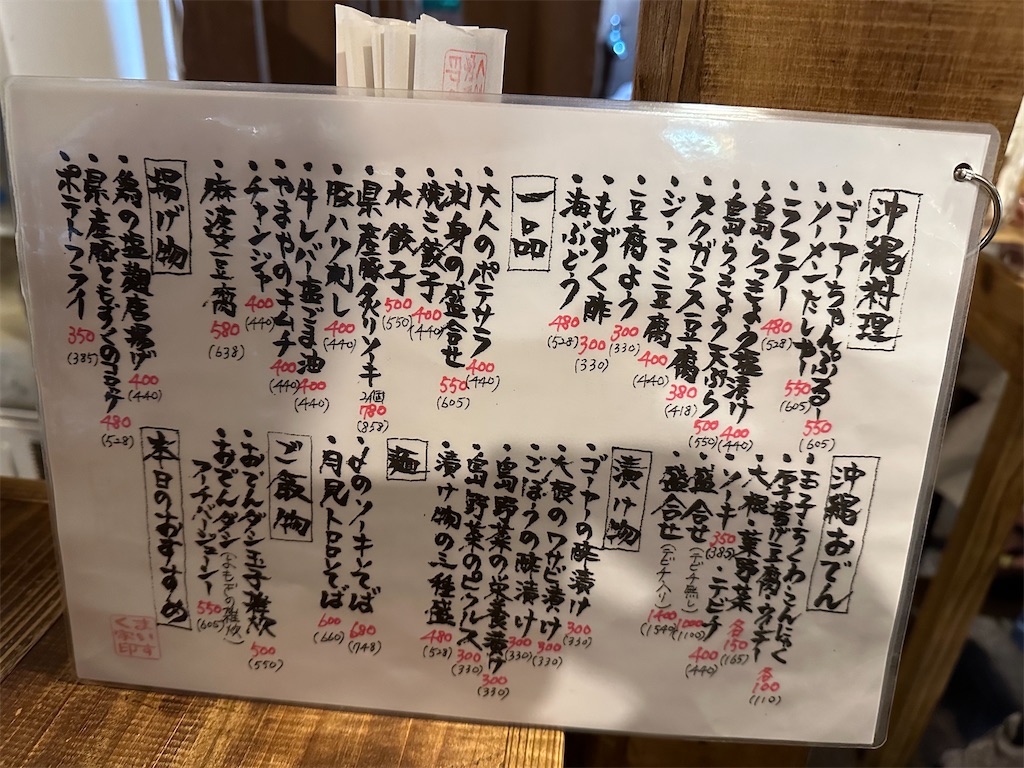 沖縄料理
・ゴーヤーちゃんぷるー 550 (605)
・ソーメンたしやー 550 (605)
・ラフテー 480 (528)
・島らっきょう塩漬け 400 (440)
・島らっきょう天ぷら 500 (550)
・スクガラス豆腐 380 (418)
・ジーマミ豆腐 400 (440)
・豆腐よう 300 (330)
・もずく酢 300 (330)
・海ぶどう 480 (528)
一品
・大人のポテサラ 400 (440)
・刺身の盛合せ 550 (605)
・焼き餃子 400 (440)
・水餃子 500 (550)
・県産豚炙りソーキ 2個 780 (858)
・豚ハツ刺し 400 (440)
・牛レバー塩ごま油 400 (440)
・やまやのキムチ 400 (440)
・チャンジャ 400 (440)
・麻婆豆腐 580 (638)
揚げ物
・鳥の塩麹唐揚げ 400 (440)
・県産豚ともずくのコロッケ 480 (528)
・ポテトフライ 350 (385)
沖縄おでん
・玉子・ちくわ・こんにゃく
・厚揚げ豆腐・ウインナー 各100 (110)
・大根・葉野菜 各150 (165)
・ソーキ 350 (385)・テビチ 400 (440)
・盛合せ(テビチ無し) 1000 (1100)
・盛合せ(テビチ入り) 1400 (1540)
漬け物
・ゴーヤの酢漬け 300 (330)
・大根のワサビ漬け 300 (330)
・ごぼうの酢漬け 300 (330)
・島野菜の栄養漬け 300 (330)
・島野菜のピクルス 300 (330)
・漬け物の三種盛 480 (528)
麺
のソーキそば 680 (748)
・月見トロロそば 600 (660)
ご飯物
・おでんダシ玉子雑炊 500 (550)
・おでんダシ(よもぎの雑炊)
フーチバージューシー 550 (605)
本日のおすすめ